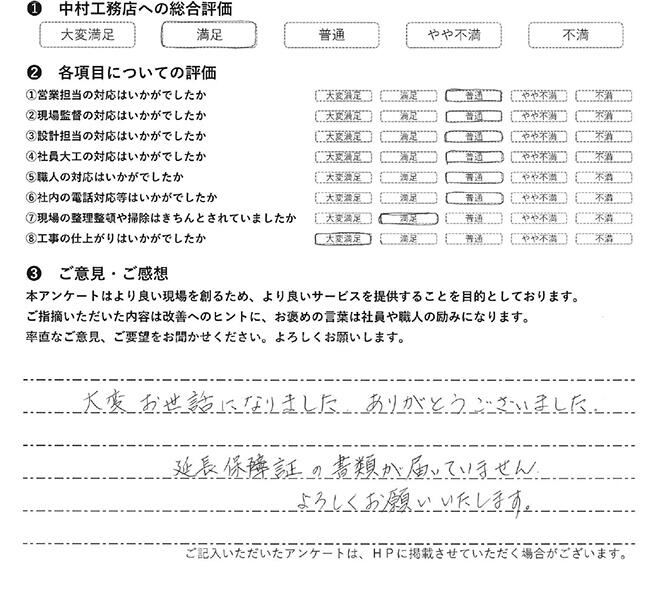 ❶ 中村工務店への総合評価
大変満足 満足 普通 やや不満 不満
❷ 各項目についての評価
①営業担当の対応はいかがでしたか 大変満足 満足 普通 やや不満 不満
②現場監督の対応はいかがでしたか 大変満足 満足 普通 やや不満 不満
③設計担当の対応はいかがでしたか 大変満足 満足 普通 やや不満 不満
④社員大工の対応はいかがでしたか 大変満足 満足 普通 やや不満 不満
⑤職人の対応はいかがでしたか 大変満足 満足 普通 やや不満 不満
⑥社内の電話対応等はいかがでしたか 大変満足 満足 普通 やや不満 不満
⑦現場の整理整頓や掃除はきちんとされていましたか 大変満足 満足 普通 やや不満 不満
⑧工事の仕上がりはいかがでしたか 大変満足 満足 普通 やや不満 不満
❸ ご意見・ご感想
本アンケートはより良い現場を創るため、より良いサービスを提供することを目的としております。
ご指摘いただいた内容は改善へのヒントに、お褒めの言葉は社員や職人の励みになります。
率直なご意見、ご要望をお聞かせください。よろしくお願いします。
大変お世話になりました。ありがとうございました。
延長保障証の書類が届いていません。
よろしくお願いいたします。
ご記入いただいたアンケートは、HPに掲載させていただく場合がございます。